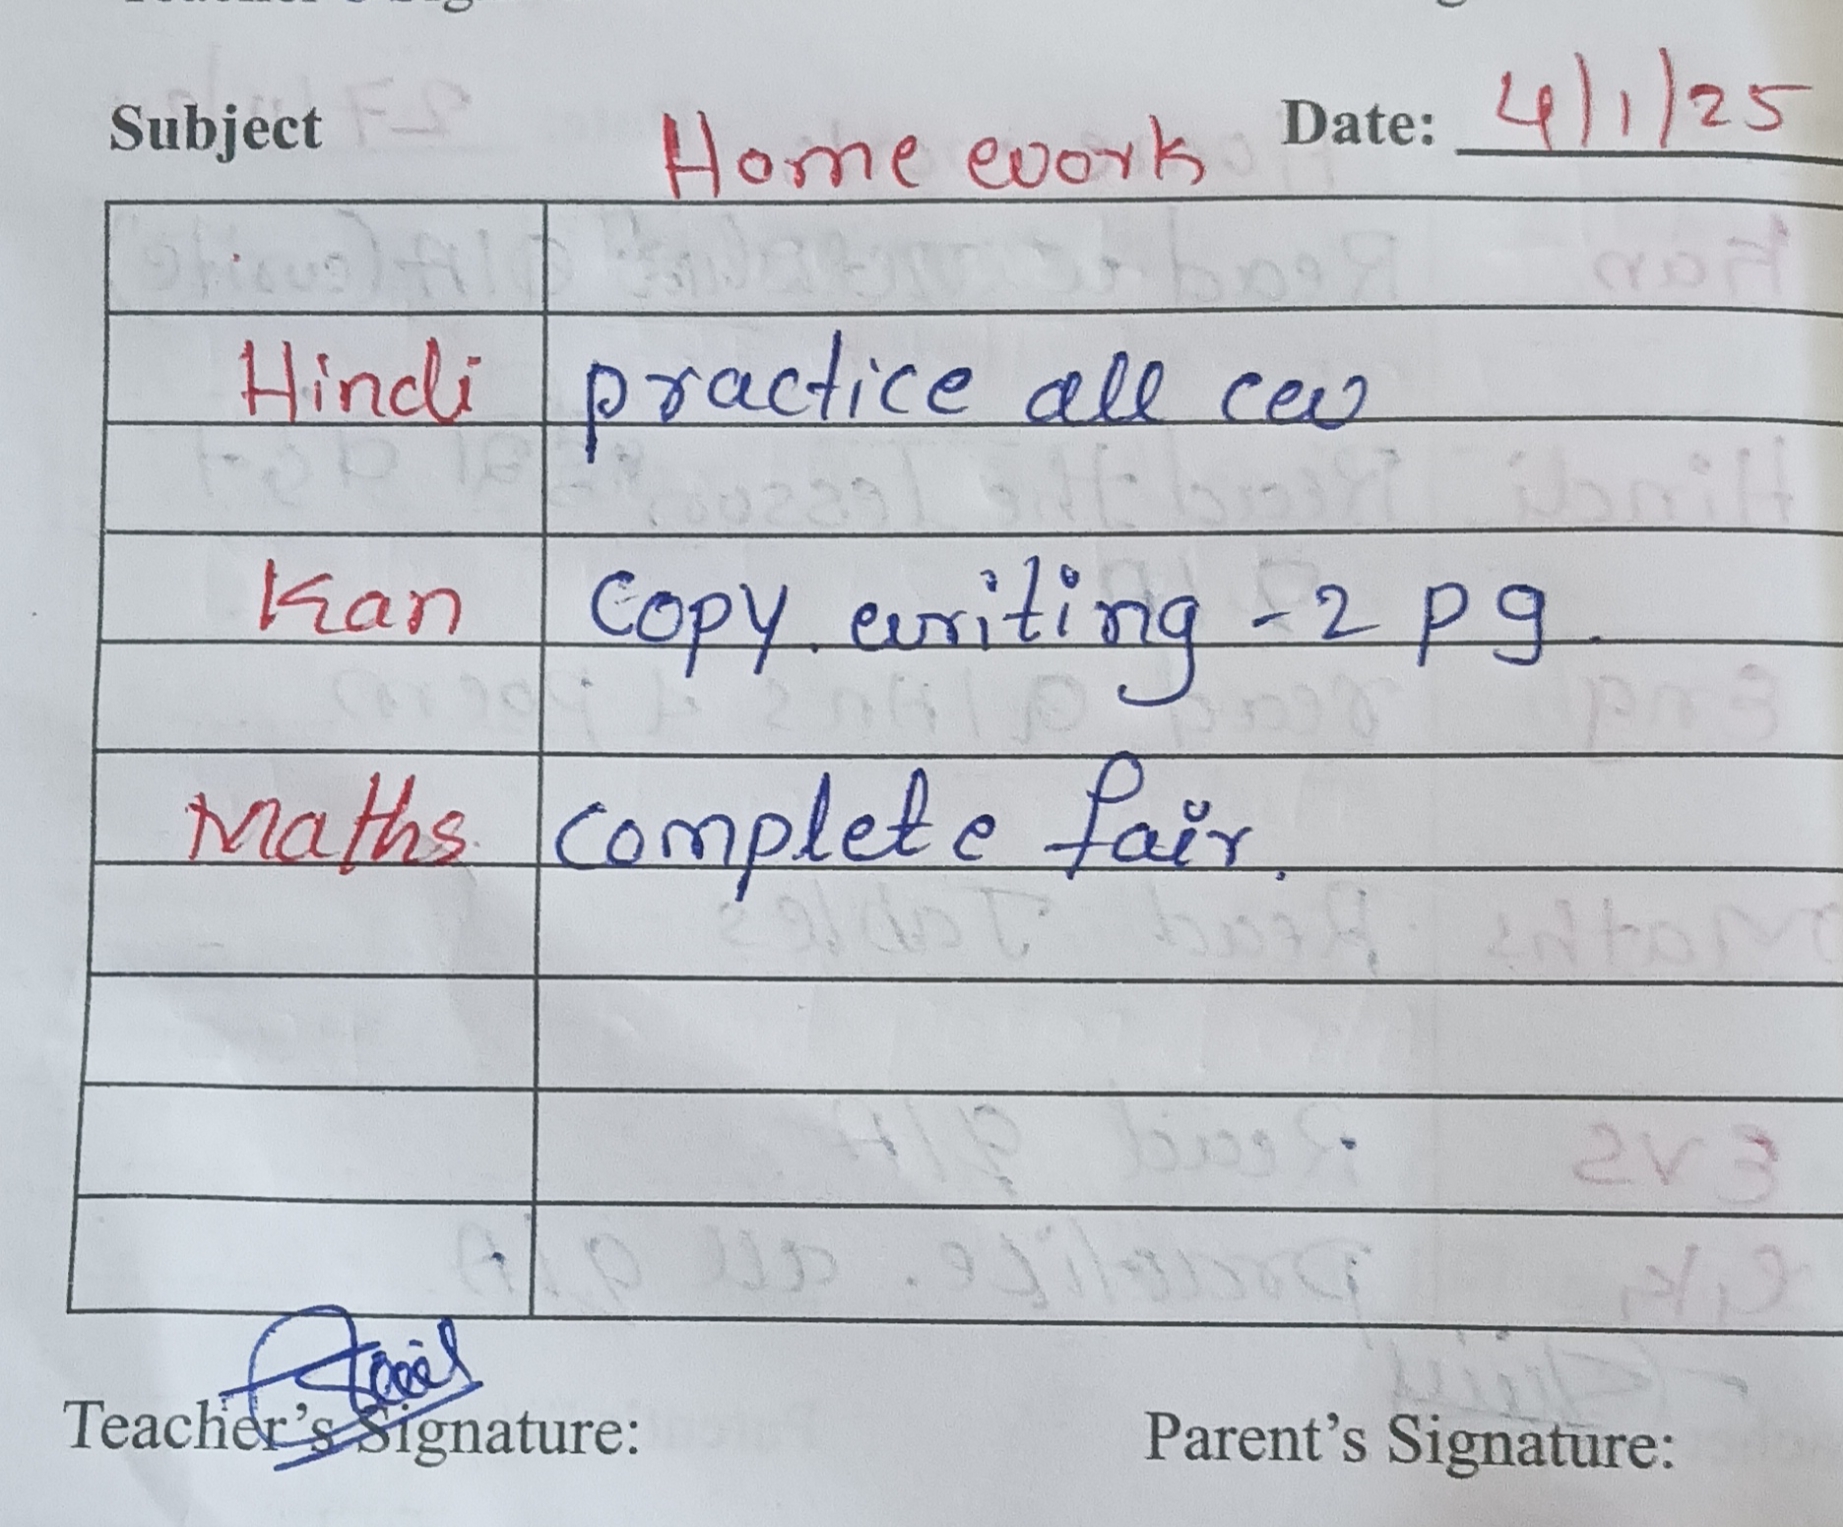 Subject Home work Date: 4/1/25
Hindi practice all cw
Kan Copy writing - 2 pg.
Maths complete fair.
Teacher's Signature: Parent's Signature: